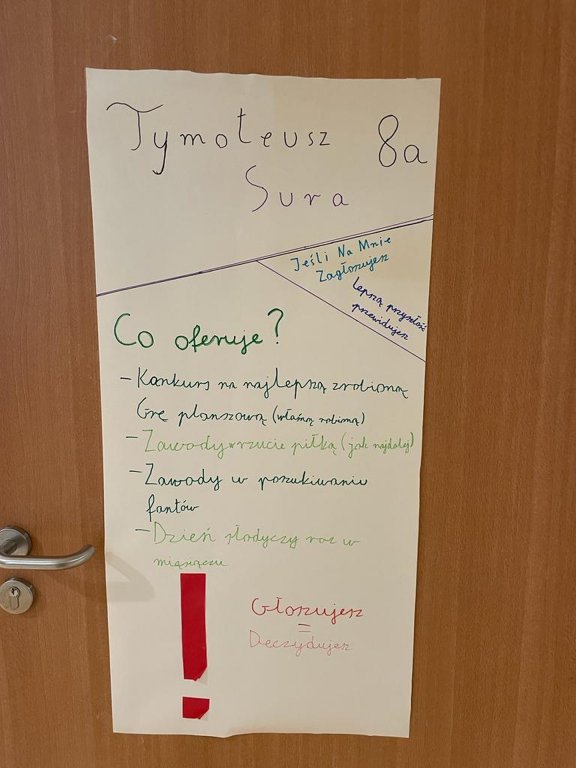 Tymoteusz 8a
Sura
Jeśli Na Mnie
Zagłosujesz
lepszą przyszłość
przewidujesz
Co oferuje?
- Konkurs na najlepszą zrobioną
Grę planszową (własną robioną)
- Zawody w rzucie piłką (jak najdalej)
- Zawody w poszukiwaniu
fantów
- Dzień słodyczy raz w
miesiącu
Głosujesz
=
Decydujesz